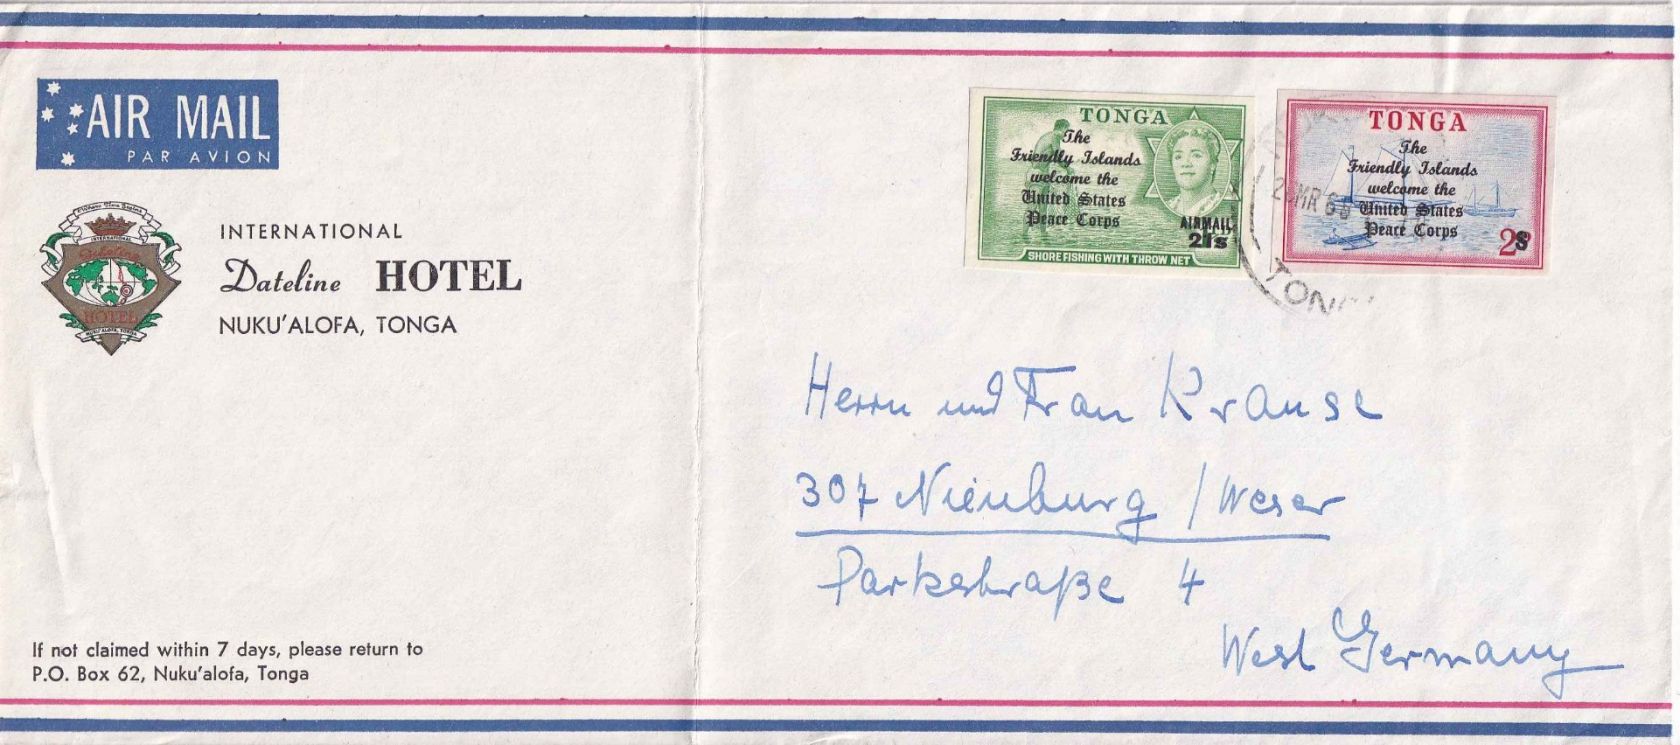 AIR MAIL
PAR AVION
INTERNATIONAL
Dateline HOTEL
NUKU'ALOFA, TONGA
HOTEL
TONGA
The
Friendly Islands
welcome the
United States
Peace Corps
AIRMAIL
21s
SHORE FISHING WITH THROW NET
TONGA
The
Friendly Islands
welcome the
United States
Peace Corps
2s
MR
Herrn und Frau Krause
307 Nienburg / Weser
Parkstraße 4
West Germany
If not claimed within 7 days, please return to
P.O. Box 62, Nuku'alofa, Tonga